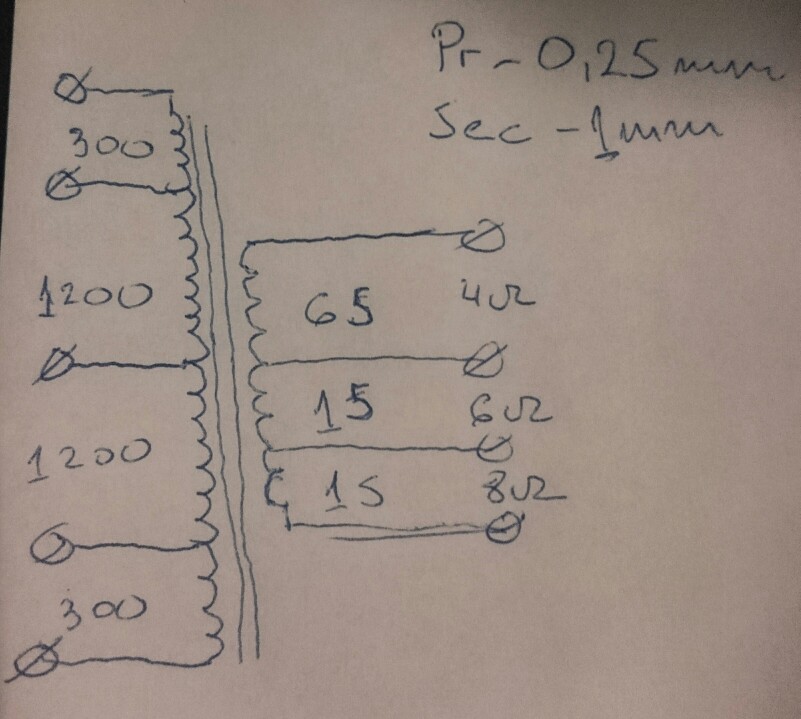 Pr - 0,25mm
Sec - 1mm
300
1200
1200
300
65 4Ω
15 6Ω
15 8Ω